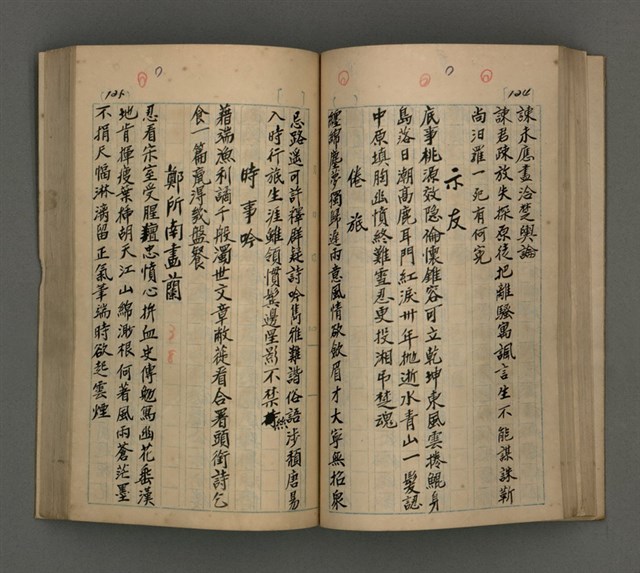 124
諫未應盡洽楚輿論
諫君疎放失採原徒把離騷寓諷言生不能謀誅靳
尚汨羅一死有何寃
示友
底事桃源效隐倫懷錐容可立乾坤東風雲捲鯤身
島落日潮高鹿耳門紅淚卅年拋逝水青山一髮認
中原填胸幽憤終難靈忍更投湘吊楚魂
倦旅
纏綿塵夢獨歸遲雨意風情欲斂眉才大寧無招衆
125
忌路遥可許釋群疑詩吟雋雅難諧俗語涉頹唐易
入時行旅生涯雖領慣鬓邊星影不禁絲
時事吟
藉端漁利譎千般濁世文章敝蓰看合署頭銜詩乞
食一篇贏得幾盤餐
鄭所南畫蘭
忍看宋室受腥羶忠憤心折血史傳勉寫幽花垂漢
地肯揮瘦葉拂胡天江山綿渺根何著風雨蒼茫墨
不捐尺幅淋漓留正氣筆端時欲起雲煙